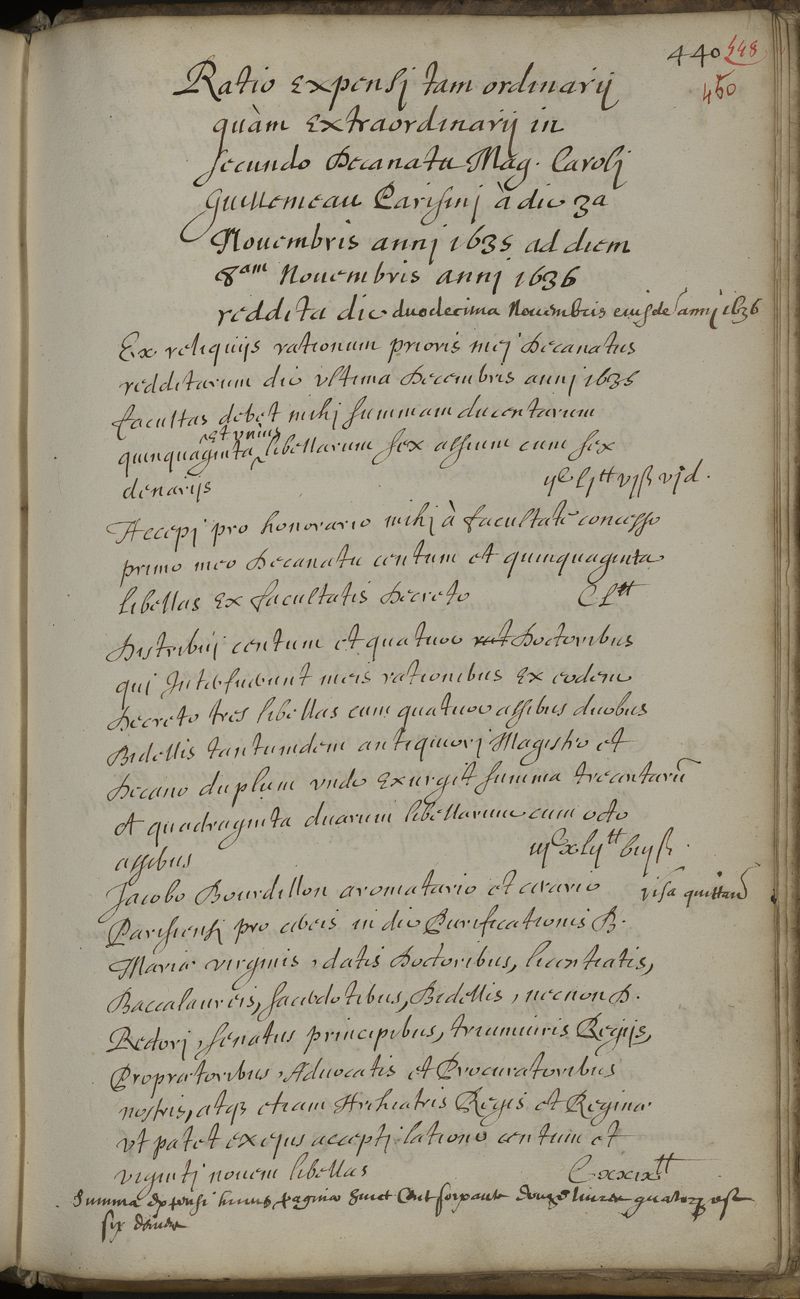 440 448
450
Ratio expensi tam ordinarij
quàm extraordinarij in
secundo Decanatu Mag. Caroli
Guillemeau Parisini à die 3a
Nouembris anni 1635 ad diem
8am Nouembris anni 1636
reddita die duodecima Nouembris eiusdē anni 1636
Ex reliquijs rationum prioris mei Decanatus
redditarum die vltima Decembris anni 1635
facultas debet mihi summam ducentarum
et vnius
quinquaginta libellarum sex assium cum sex
denarijs ijC Lj tt vjß vjd.
Accepi pro honorario mihi à facultate concesso
primo meo Decanatu centum et quinquaginta
libellas ex facultatis Decreto CL tt
Distribui centum et quatuor rat Doctoribus
qui Interfuerunt meis rationibus ex eodem
Decreto tres libellas cum quatuor assibus duobus
Bidellis tantumdem antiquiori Magistro et
Decano duplum vnde exurgit summa trecentarū
et quadraginta duarum libellarum cum octo
assibus iijC xlij tt viijß.
Jacobo Bourdillon aromatario et cerario visa quittanc
Parisiensi pro cereis in die Purificationis B.
Mariæ virginis, datis Doctoribus, licentiatis,
Baccalaureis, sacerdotibus, Bidellis, necnon D.
Rectori, senatus principibus, triumuiris Regijs,
Propratoribus, Aduocatis et Procuratoribus
nostris, atqz etiam Archiatris Regis et Reginæ
vt patet ex ejus accepti latione centum et
viginti nouem libellas Cxxix tt
Summa expensi huius paginæ huict Cent soixante douze liures quatorze
six deniers